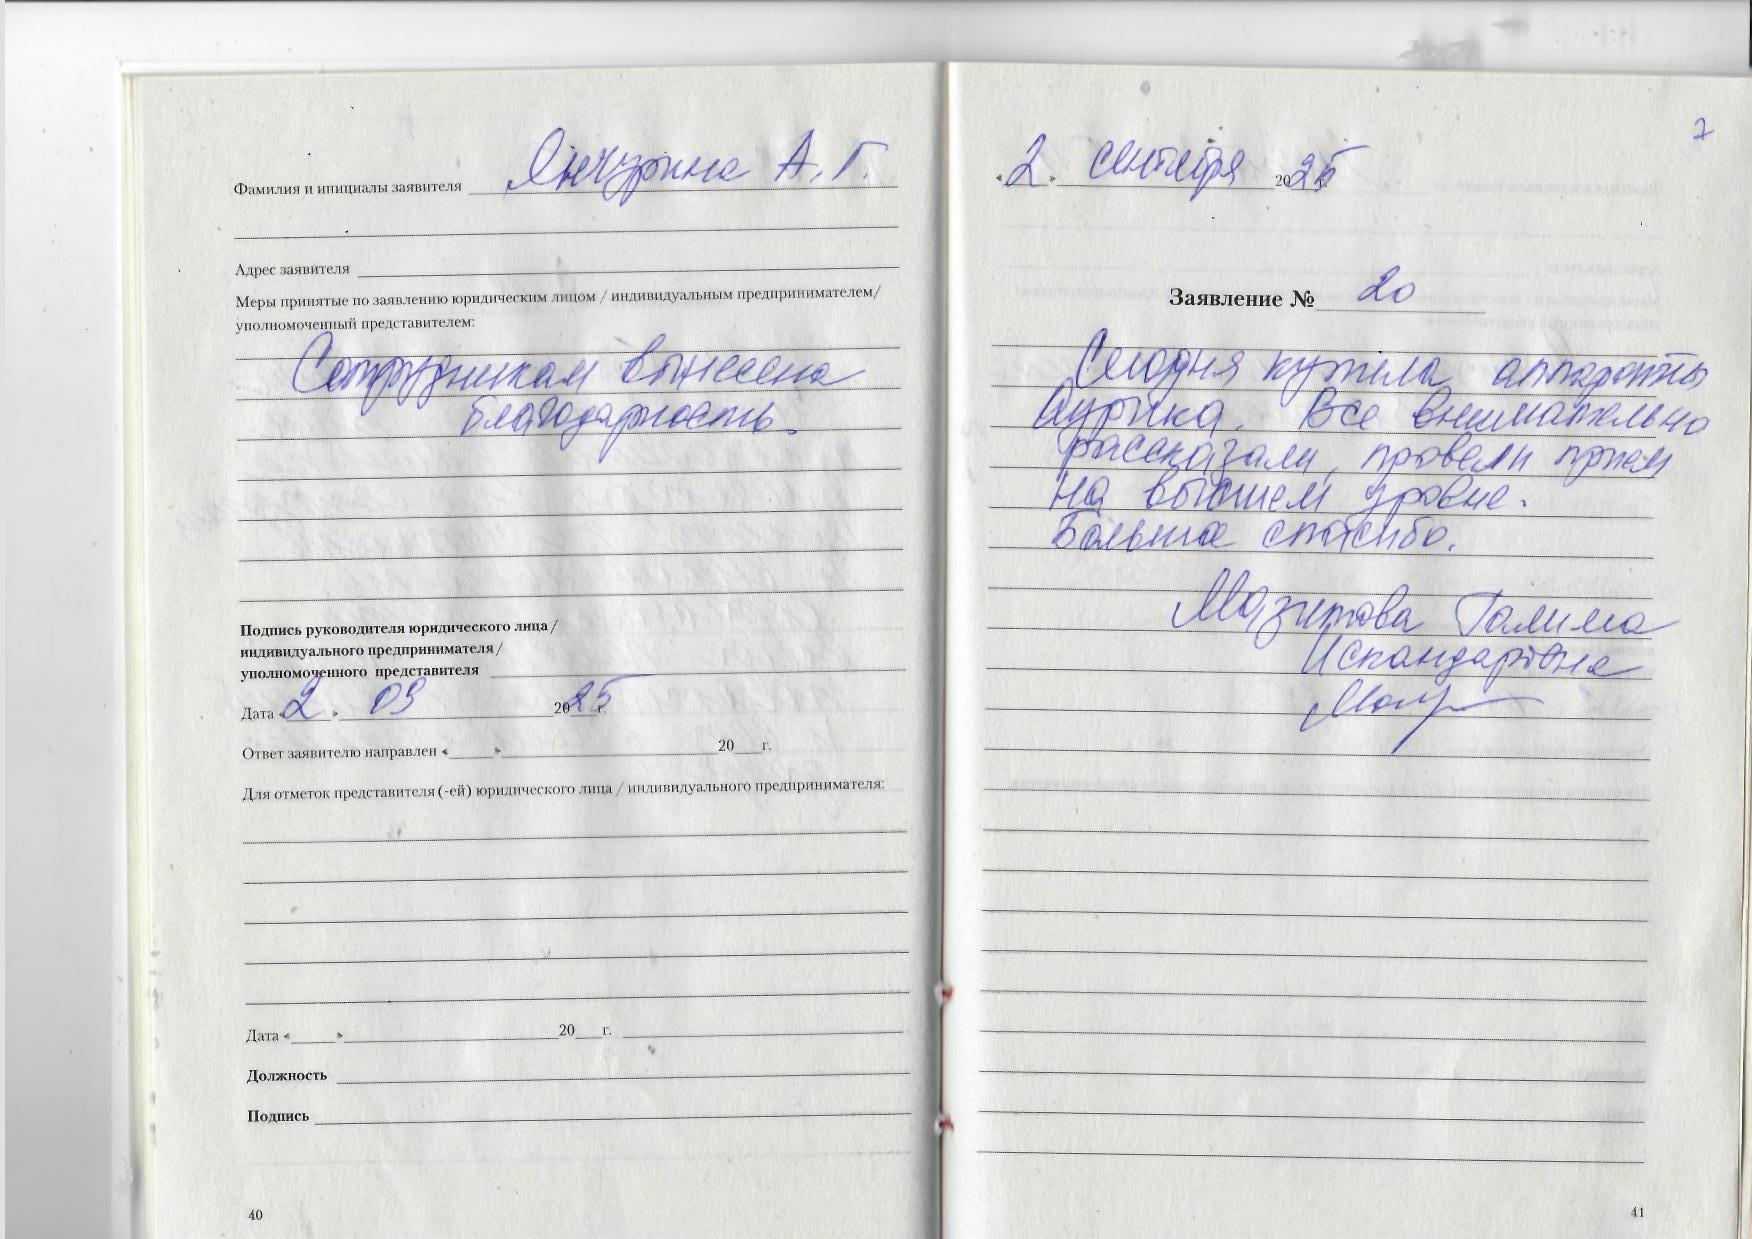 Фамилия и инициалы заявителя Янчурина А. Г.
Адрес заявителя
Меры принятые по заявлению юридическим лицом / индивидуальным предпринимателем/
уполномоченный представителем:
Сотрудникам вынесена
благодарность.
Подпись руководителя юридического лица /
индивидуального предпринимателя /
уполномоченного представителя
Дата « 2 » 09 2025 г.
Ответ заявителю направлен «____» 20___г.
Для отметок представителя (-ей) юридического лица / индивидуального предпринимателя:
Дата «____» 20___г.
Должность
Подпись
40
7
« 2 » сентября 2025 г.
Заявление № 20
Сегодня купила аппараты
Аурика. Все внимательно
рассказали, провели прием
на высшем уровне.
Большое спасибо.
Мазитова Галима
Искандаровна
41